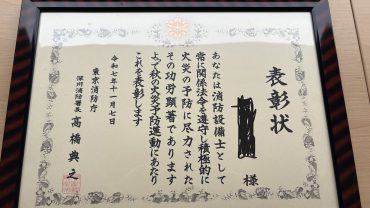 表彰状
様
あなたは消防設備士として
常に関係法令を遵守し積極的に
火災の予防に尽力された
その功労顕著であります
よって秋の火災予防運動にあたり
これを表彰します
令和七年十一月七日
東京消防庁
深川消防署長 高橋典之